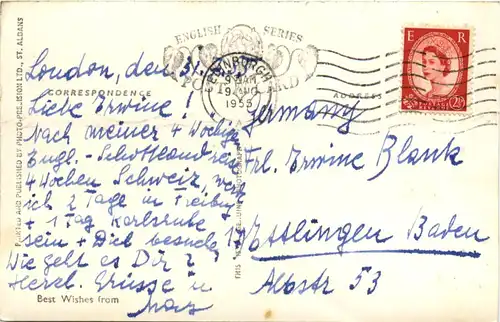 ENGLISH SERIES
POST CARD
London, den 31.
EDINBURGH
9 AUG
1955
E R
2½
CORRESPONDENCE
ADDRESS
Liebe Erwine!
Nach meiner 4 wochigen
Engl.-Schottland
4 Wochen Schweiz, werde
ich 2 Tage in Freiburg
+ 1 Tag Karlsruhe
sein + Dich besuchen
Wie geht es Dir?
Herzl. Grüsse
Best Wishes from
Germany
Frl. Erwine Blank
Ettlingen Baden
Albstr 53
PRINTED AND PUBLISHED BY PHOTO-PRECISION LTD., ST. ALBANS